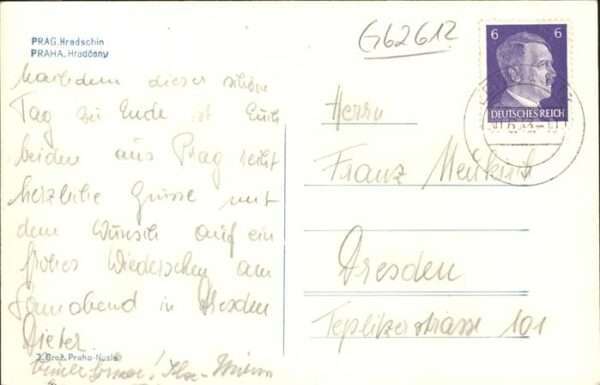 PRAG, Hradschin
PRAHA, Hradčany
G62612
6 6
DEUTSCHES REICH
Nachdem dieser schöne
Tag zu Ende ist Euch
beiden aus Prag recht
herzliche Grüsse mit
dem Wunsch auf ein
frohes Wiedersehen am
Sonnabend in Dresden
Dieter
J. Grož, Praha-Nusle
Herrn
Franz Meukirch
Dresden
Teplitzerstrasse 101